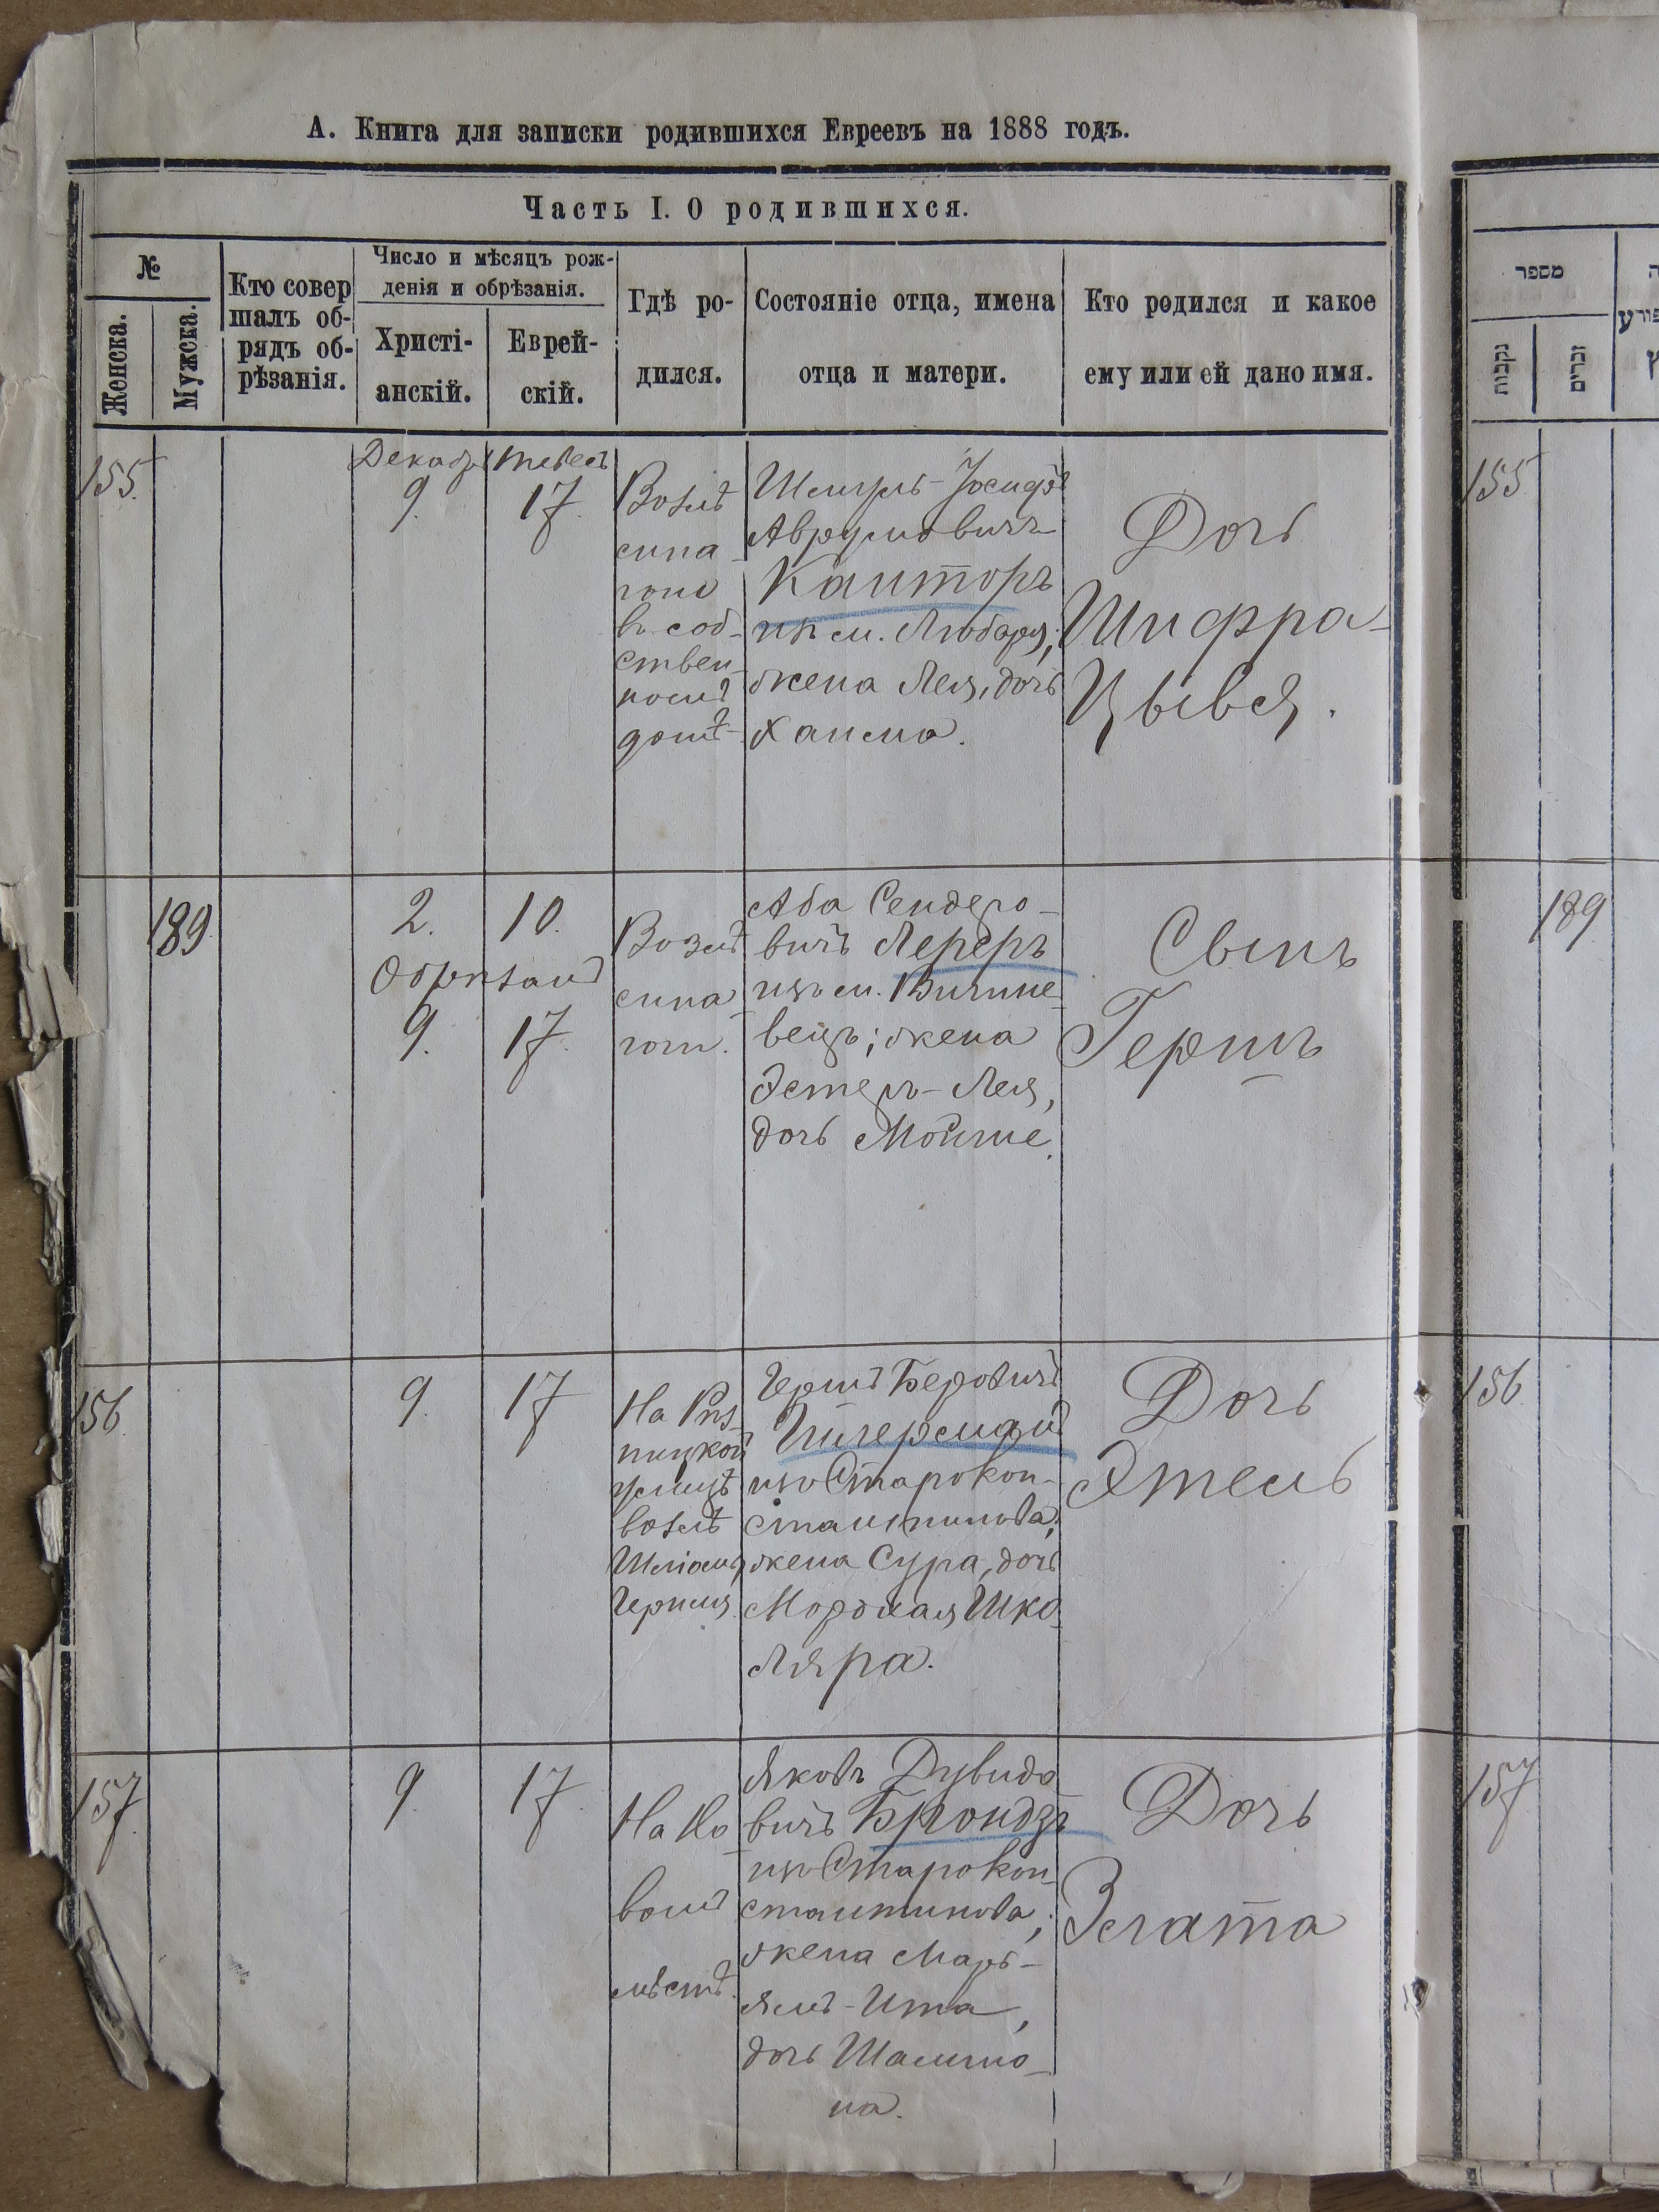 А. Книга для записки родившихся Евреевъ на 1888 годъ.
Часть I. О родившихся.
№
Женска.
Мужска.
Кто совер
шалъ об-
рядъ об-
рѣзанія.
Число и мѣсяцъ рож-
денія и обрѣзанія.
Христі-
анскій.
Еврей-
скій.
Гдѣ ро-
дился.
Состояніе отца, имена
отца и матери.
Кто родился и какое
ему или ей дано имя.
מספר
נקבות
זכרים
155.
Декабр
9.
Тевесъ
17.
Возлѣ
сина-
гоги
въ соб-
ствен-
номъ
домѣ
Шмуль-Іосифъ
Аврумовичъ
Канторъ
изъ м. Любара;
жена Лея, дочь
Хаима.
Дочь
Шифра-
Цывья.
155
189
2.
10.
Обрѣзанъ
9.
17.
Возлѣ
сина-
гоги.
Аба Сендеро-
вичъ Лереръ
изъ м. Вишне-
вецъ; жена
Эстеръ-Лея,
дочь Мойше.
Сынъ
Гершъ
189
156.
9.
17
На
улицѣ
возлѣ
Гершъ Беровичъ
изъ Старокон-
стантинова;
жена Сура, дочь
Мордхая Шко-
ляра.
Дочь
Этель
156.
157.
9.
17.
На Но-
вомъ
мѣстѣ.
Яковъ Дувидо
вичъ Брондзъ
изъ Старокон-
стантинова;
жена Марь-
ямъ-Ита,
дочь Шалимо-
на.
Дочь
Злата
157